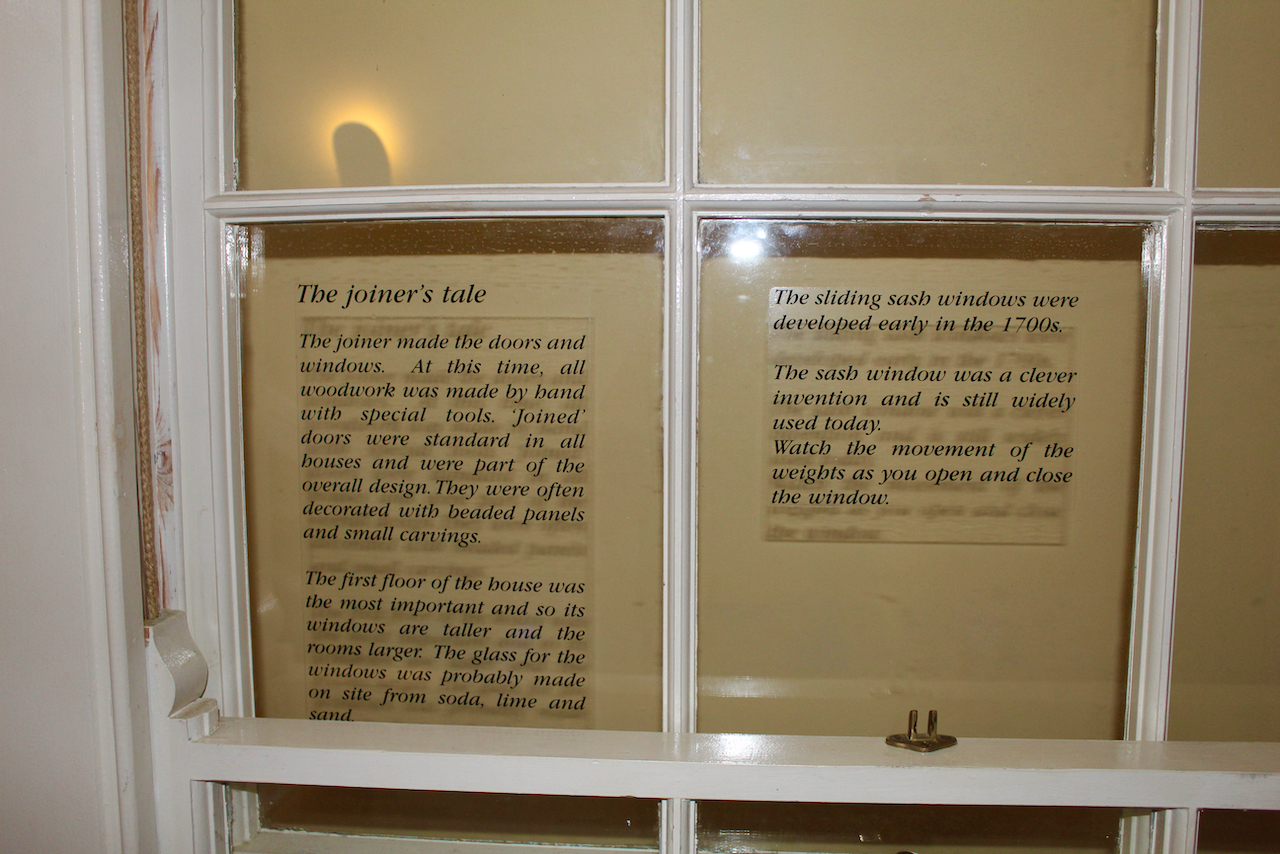 The joiner's tale
The joiner made the doors and
windows. At this time, all
woodwork was made by hand
with special tools. 'Joined'
doors were standard in all
houses and were part of the
overall design. They were often
decorated with beaded panels
and small carvings.
The first floor of the house was
the most important and so its
windows are taller and the
rooms larger. The glass for the
windows was probably made
on site from soda, lime and
sand.
The sliding sash windows were
developed early in the 1700s.
The sash window was a clever
invention and is still widely
used today.
Watch the movement of the
weights as you open and close
the window.